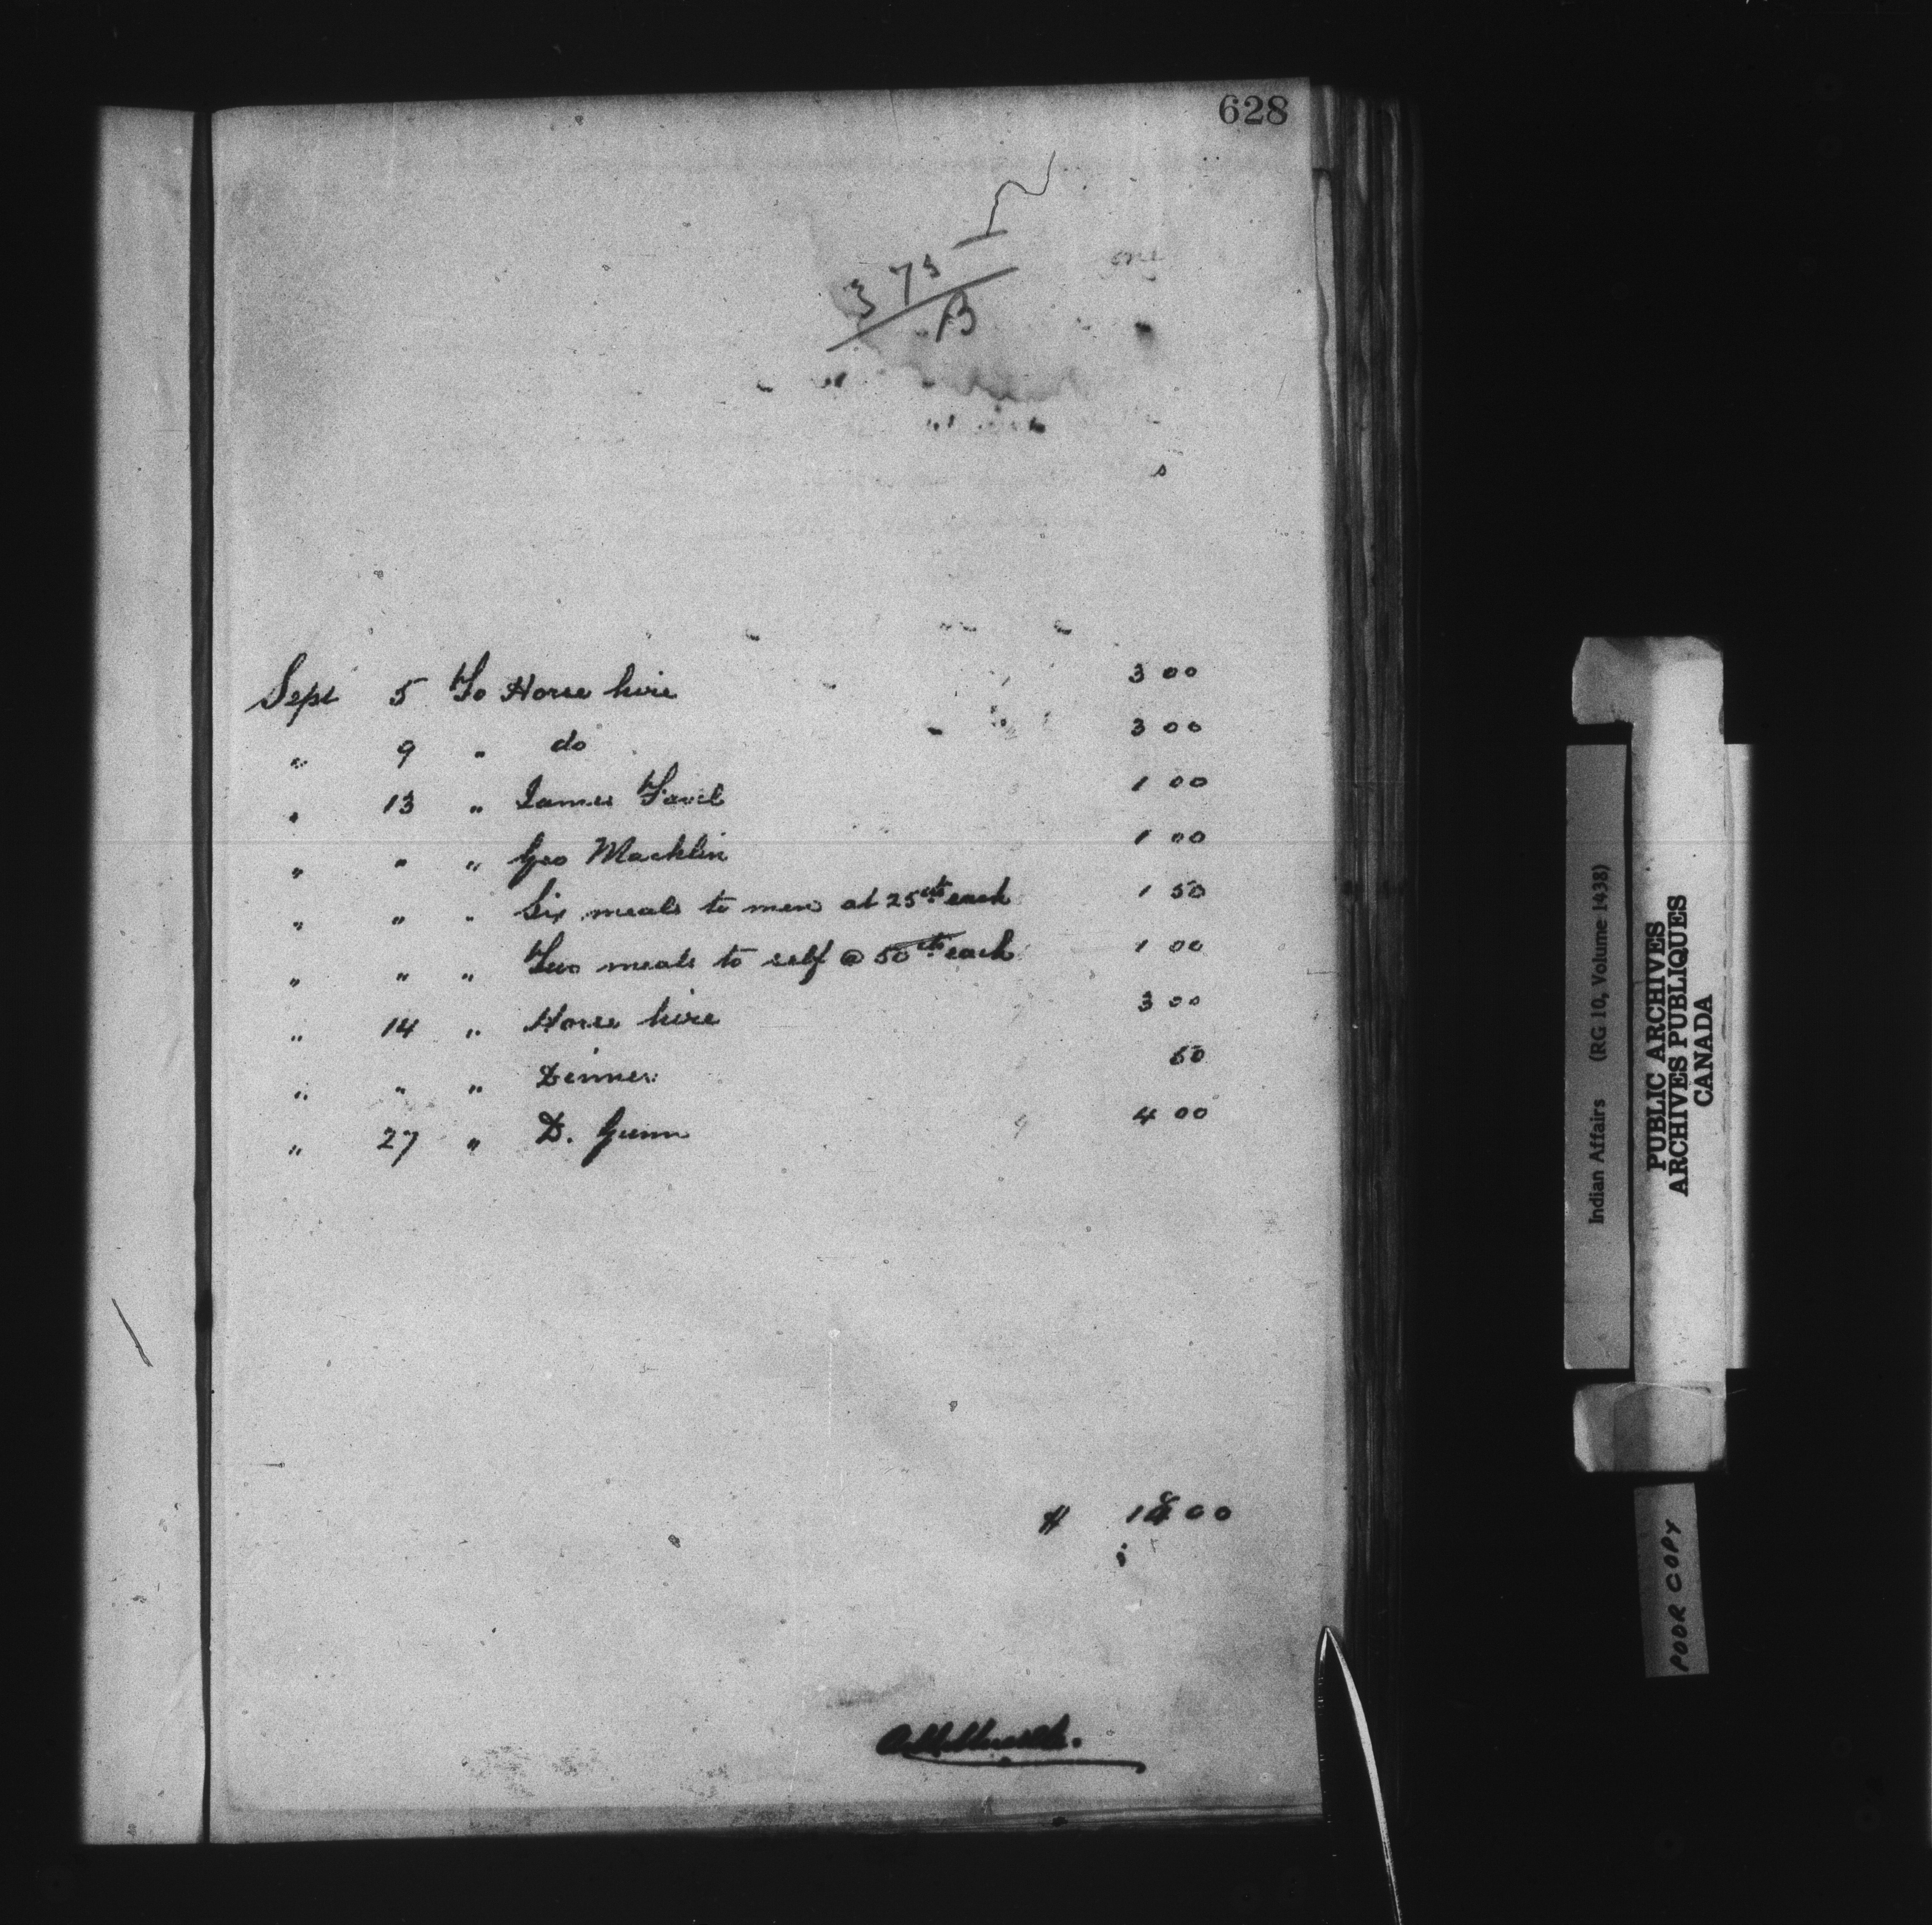 628
375
B
Sept 5 To Horse hire 3 00
" 9 " do 3 00
" 13 " James Favel 1 00
" " " Geo Macklin 1 00
" " " Six meals to men at 25cts each 1 50
" " " Two meals to self @ 50cts each 1 00
" 14 " Horse hire 3 00
" " " Dinner 50
" 27 " D. Gunn 4 00
$ 18 00
Indian Affairs (RG 10, Volume 1438)
PUBLIC ARCHIVES
ARCHIVES PUBLIQUES
CANADA
POOR COPY